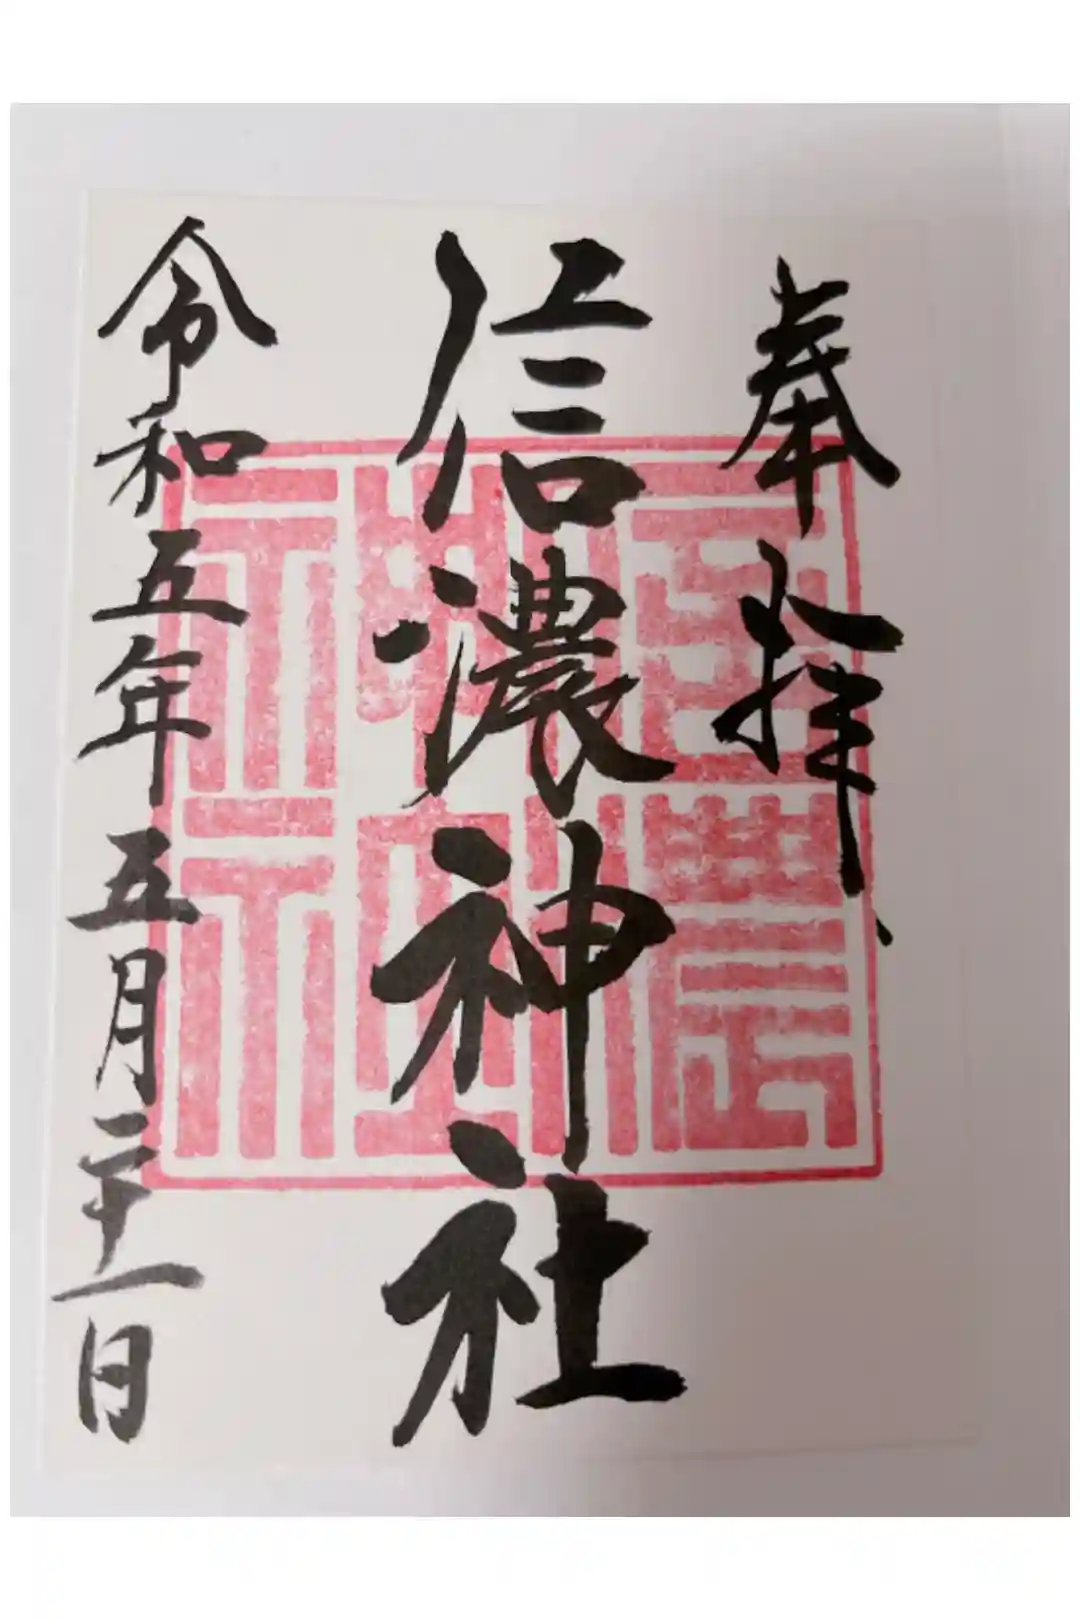 奉拝
信濃神社
令和五年五月二十一日
信濃
神社